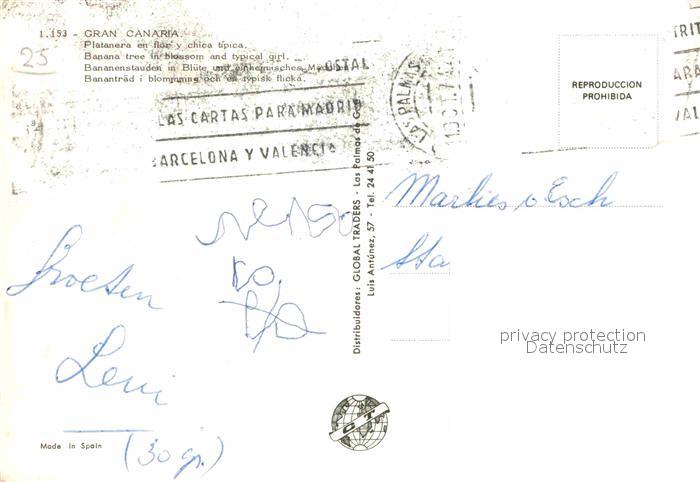 1.153 - GRAN CANARIA.
Platanera en flor y chica típica.
Banana tree in blossom and typical girl.
Bananenstauden in Blüte und einheimisches
Bananträd i blomnning och en typisk flicka.
25
OSTAL
LAS CARTAS PARA MADRID
BARCELONA Y VALENCIA
LAS PALMAS
REPRODUCCION
PROHIBIDA
Distribuidores: GLOBAL TRADERS - Las Palmas de G.C.
Luis Antúnez, 57 - Tel. 24 41 50
Marlies v Esch
Sta
Groeten
Leni
(30 gr.)
Made in Spain
privacy protection
Datenschutz